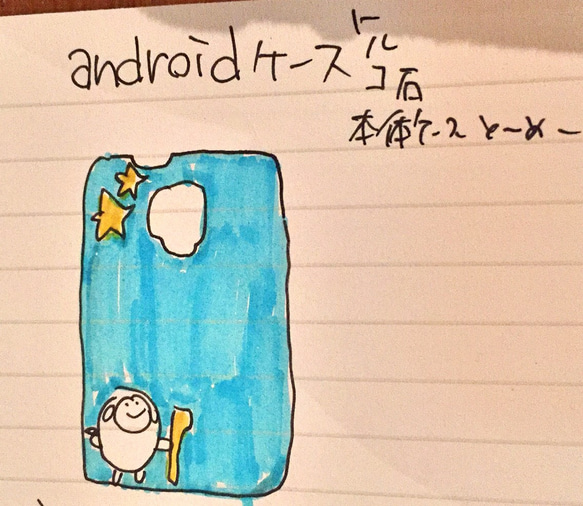 androidケース
トルコ石
本体ケースとーめー